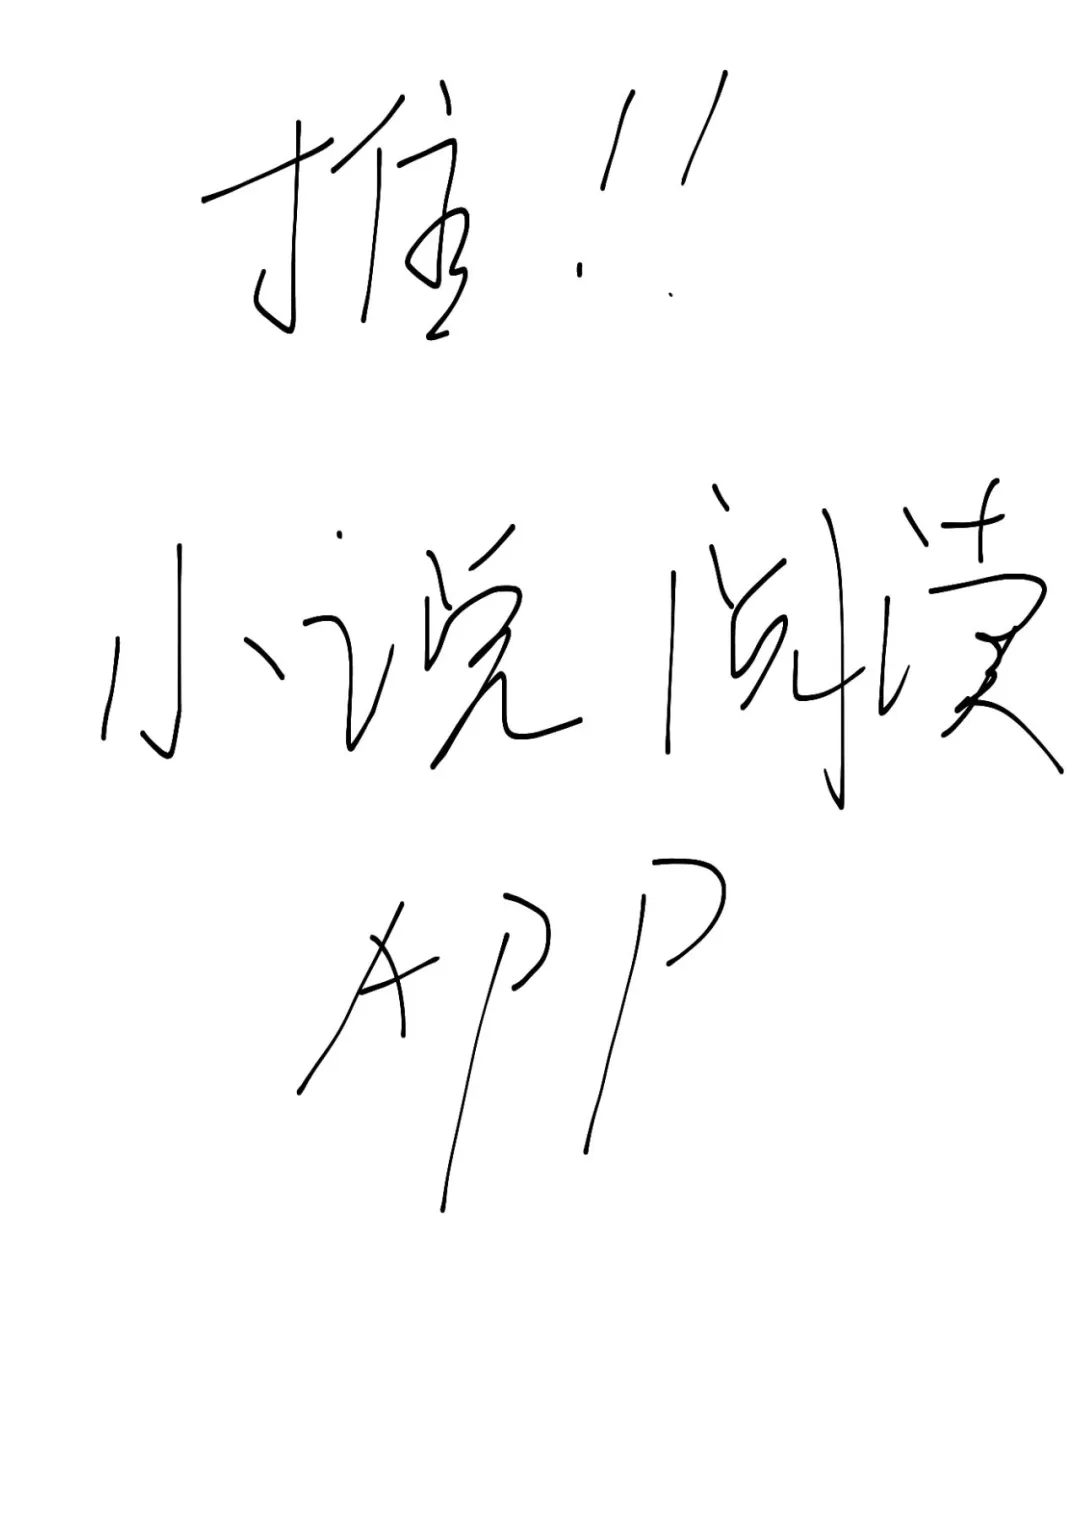 推！！
小说阅读
APP